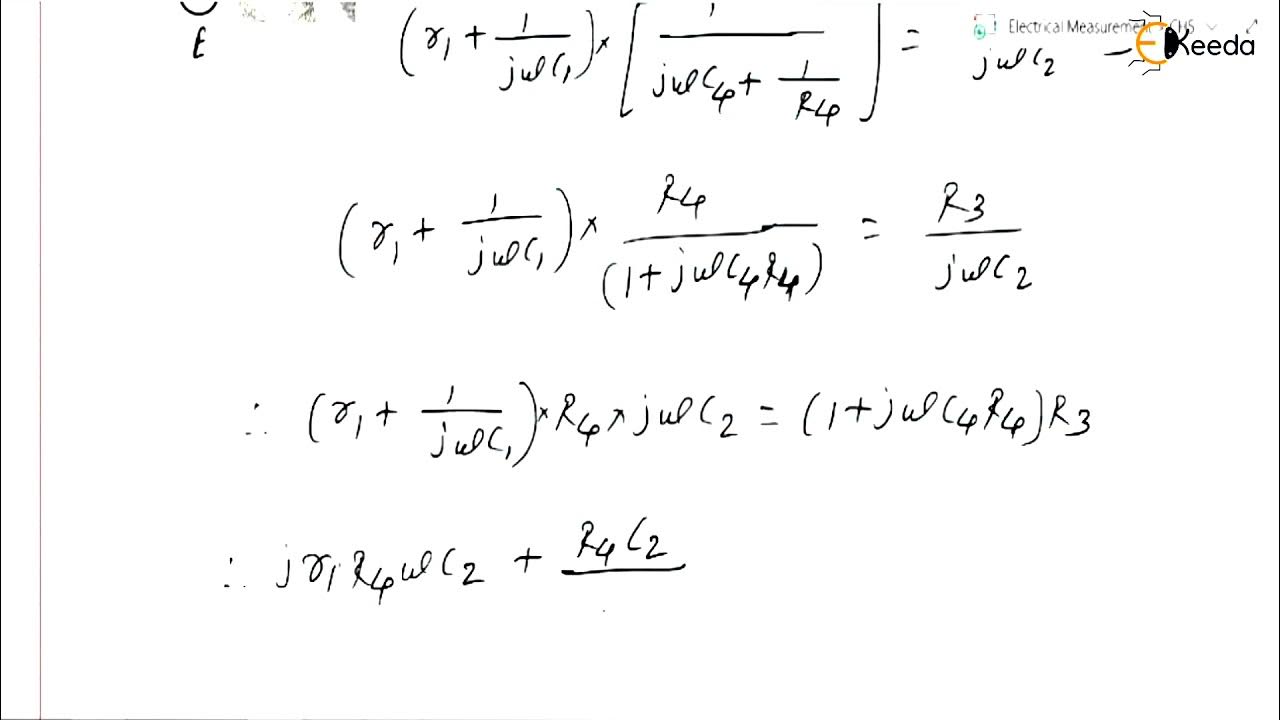 E
(r₁ + 1/jωC₁) × [1/(jωC₄ + 1/R₄)] = /jωC₂ —
Electrical Measurement CHS
EKeeda
(r₁ + 1/jωC₁) × R₄/(1+jωC₄R₄) = R₃/jωC₂
∴ (r₁ + 1/jωC₁) × R₄ × jωC₂ = (1+jωC₄R₄)R₃
∴ jr₁R₄ωC₂ + R₄C₂/